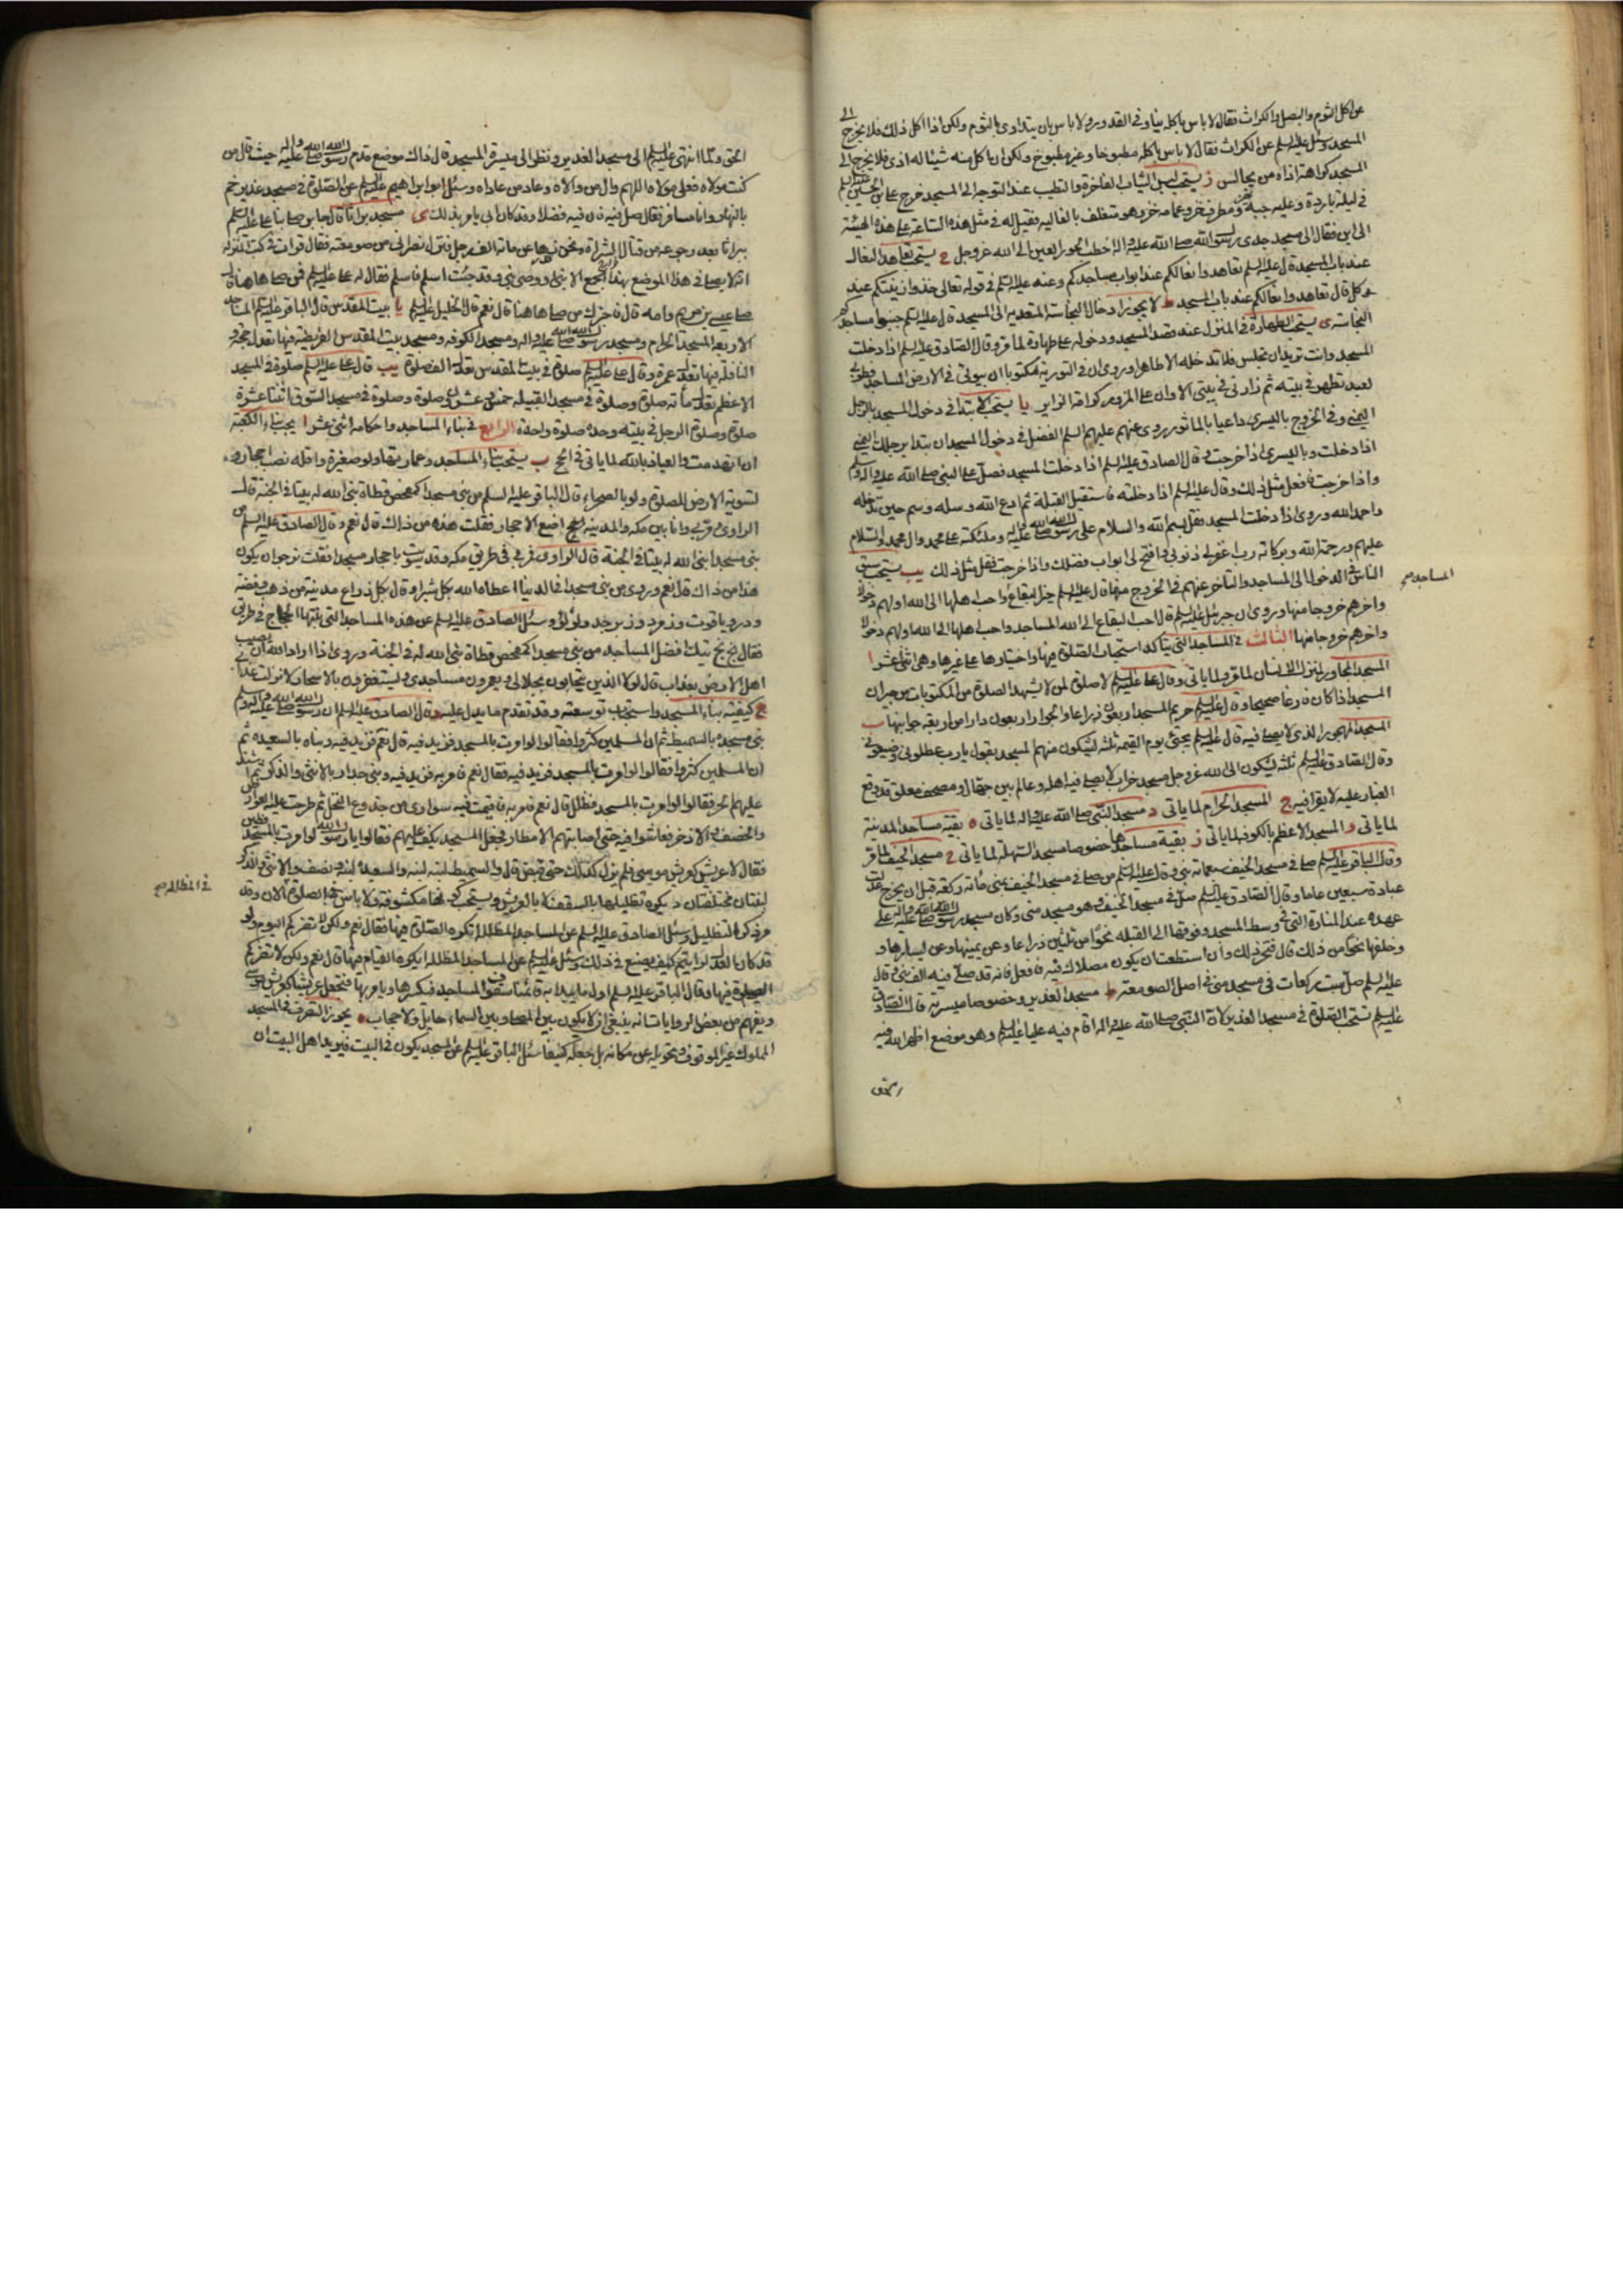 عن اكل الثوم والبصل والكراث فقال لا باس باكله نيا وفى القدور ولا باس بان يتداوى بالثوم ولكن اذا اكل ذلك فلا يخرج الى
المسجد وسئل عليه السلم عن الكراث فقال لا باس باكله مطبوخا وغير مطبوخ ولكن ان اكل منه شيئا له اذى فلا يخرج الى
المسجد كراهة اذاه من يجالس ز يستحب لبس الثياب الفاخرة والتطيب عند التوجه الى المسجد خرج على بن الحسين عليه السلم
فى ليلة باردة وعليه جبة خز ومطرف خز وعمامه خز وهو متغلف بالغاليه فقيل له فى مثل هذه الساعة على هذه الهيئة
الى اين فقال الى مسجد جدى رسول الله صلى الله عليه واله اخطب الحور العين الى الله عز وجل ح يستحب تعاهد النعال
عند باب المسجد قال عليه السلم تعاهدوا نعالكم عند ابواب مساجدكم وعنه عليه السلم فى قوله تعالى خذوا زينتكم عند
كل قال تعاهدوا نعالكم عند باب المسجد ط لا يجوز ادخال النجاسة المتعدية الى المسجد قال عليه السلم جنبوا مساجدكم
النجاسة ى يستحب الطهارة فى المنزل عند قصد المسجد ودخوله على طهارة لما مر وقال الصادق عليه السلم اذا دخلت
المسجد وانت تريد ان تجلس فلا تدخله الا طاهرا وروى ان فى التورية مكتوبا ان بيوتى فى الارض المساجد فطوبى
لعبد تطهر فى بيته ثم زارنى فى بيتى الا وان على المزور كرامة الزاير يا يستحب الابتدا فى دخول المسجد بالرجل
اليمنى وفى الخروج باليسرى داعيا بالماثور روى عنهم عليهم السلم الفضل فى دخول المسجد ان تبدا برجلك اليمنى
اذا دخلت وباليسرى اذا خرجت وقال الصادق عليه السلم اذا دخلت المسجد فصل على النبى صلى الله عليه واله وسلم
واذا خرجت فافعل مثل ذلك وقال عليه السلم اذا دخلته فاستقبل القبلة ثم ادع الله وسله وسم حين تدخله
واحمد الله وروى اذا دخلت المسجد فقل بسم الله والسلام على رسول الله صلى الله عليه واله وملئكته على محمد وال محمد والسلام
عليهم ورحمة الله وبركاته رب اغفر لى ذنوبى وافتح لى ابواب فضلك واذا خرجت فقل مثل ذلك يب يستحب سبق
الناس فى الدخول الى المساجد والتاخر عنهم فى الخروج منها قال عليه السلم خير البقاع واحب اهلها الى الله اولهم دخولا
المساجد صح
واخرهم خروجا منها وروى ان جبرئيل عليه السلم قال احب البقاع الى الله المساجد واحب اهلها الى الله اولهم دخولا
واخرهم خروجا منها الثالث فى المساجد التى يتاكد استحباب الصلوة فيها واختيارها على غيرها وهى اثنى عشر ا
المسجد المجاور لمنزل الانسان لما مر ولما ياتى وقال على عليه السلم لا صلوة لمن لا يشهد الصلوة من المكتوبات من جيران
المسجد اذا كان فارغا صحيحا وقال عليه السلم حريم المسجد اربعون ذراعا والجوار اربعون دارا من اربعة جوانبها ب
المسجد المهجور الذى لا يصلى فيه قال عليه السلم يجئ يوم القيمة ثلثة يشكون منهم المسجد يقول يا رب عطلونى وضيعونى
وقال الصادق عليه السلم ثلثة يشكون الى الله عز وجل مسجد خراب لا يصلى فيه اهله وعالم بين جهال ومصحف معلق قد وقع
الغبار عليه لا يقرا فيه ج المسجد الحرام لما ياتى د مسجد النبى صلى الله عليه واله لما ياتى ه بقية مساجد المدينة
لما ياتى و المسجد الاعظم بالكوفة لما ياتى ز بقية مساجدها خصوصا مسجد السهلة لما ياتى ح مسجد الخيف لما مر
وقال الباقر عليه السلم صلى فى مسجد الخيف سبعمائة نبى وقال عليه السلم من صلى فى مسجد الخيف بمنى مائة ركعة قبل ان يخرج عدلت
عبادة سبعين عاما وقال الصادق عليه السلم صل فى مسجد الخيف وهو مسجد منى وكان مسجد رسول الله صلى الله عليه واله على
عهده عند المنارة التى فى وسط المسجد وفوقها الى القبلة نحوا من ثلثين ذراعا وعن يمينها وعن يسارها و
وخلفها نحوا من ذلك قال فتحر ذلك وان استطعت ان يكون مصلاك فيه فافعل فانه قد صلى فيه الف نبى وقال
عليه السلم صل ست ركعات فى مسجد منى فى اصل الصومعة ط مسجد الغدير وخصوصا ميسرته قال الصادق
عليه السلم تستحب الصلوة فى مسجد الغدير لان النبى صلى الله عليه واله اقام فيه عليا عليه السلم وهو موضع اظهر الله فيه
الحق ولما انتهى عليه السلم الى مسجد الغدير ونظر الى ميسرة المسجد قال ذاك موضع قدم رسول الله صلى الله عليه واله حيث قال من
كنت مولاه فعلى مولاه اللهم وال من والاه وعاد من عاداه وسئل ابو ابراهيم عليه السلم عن الصلوة فى مسجد غدير خم
بالنهار وانا مسافر فقال صل فيه فان فيه فضلا وقد كان ابى يامر بذلك ى مسجد براثا قال جابر صلى بنا على عليه السلم
ببراثا بعد رجوعه من قتال الشراة ونحن زهاء عن مائة الف رجل فنزل نصرانى من صومعته فقال قرات فى كتب المنزلة
انه لا يصلى فى هذا الموضع بهذا الجمع الا نبى او وصى نبى وقد جئت اسلم فاسلم فقال له على عليه السلم فمن صلى هاهنا قال
صلى عيسى بن مريم وامه قال فاخبرك من صلى هاهنا قال نعم قال الخليل عليه السلم يا بيت المقدس قال الباقر عليه السلم المساجد
الاربعة المسجد الحرام ومسجد رسول الله صلى الله عليه واله ومسجد الكوفه ومسجد بيت المقدس الفريضة فيها تعدل حجة و
النافلة فيها تعدل عمرة وقال على عليه السلم صلوة فى بيت المقدس تعدل الف صلوة يب قال على عليه السلم صلوة فى المسجد
الاعظم تعدل مائة صلوة وصلوة فى مسجد القبيلة خمس وعشرون صلوة وصلوة فى مسجد السوق اثنتا عشرة
صلوة وصلوة الرجل فى بيته وحده صلوة واحدة الرابع فى بناء المساجد واحكامه اثنى عشر ا يجب بناء الكعبة
ان انهدمت والعياذ بالله لما ياتى فى الحج ب يستحب بناء المساجد وعمارتها ولو صغيرة واقله نصب احجار و
تسوية الارض للصلوة ولو بالصحراء قال الباقر عليه السلم من بنى مسجدا كمفحص قطاة بنى الله له بيتا فى الجنة قال
الراوى ومر بى وانا بين مكه والمدينة اضع الاحجار فقلت هذه من ذاك قال نعم وقال الصادق عليه السلم من
بنى مسجدا بنى الله له بيتا فى الجنة قال الراوى فمر بى فى طريق مكه وقد سويت باحجار مسجدا فقلت نرجو ان يكون
هذا من ذاك قال نعم وروى من بنى مسجدا فى الدنيا اعطاه الله بكل شبر او قال بكل ذراع مدينة من ذهب وفضة
ودر وياقوت وزمرد وزبرجد ولؤلؤ وسئل الصادق عليه السلم عن هذه المساجد التى بنتها الحاج فى طريق
فقال بخ بخ تيك افضل المساجد من بنى مسجدا كمفحص قطاة بنى الله له فى الجنة وروى اذا اراد الله ان يصيب
اهل الارض بعذاب قال لولا الذين يتحابون بجلالى ويعمرون مساجدى ويستغفرون بالاسحار لانزلت عذابى
ج كيفية بناء المسجد واستحباب توسعته وقد تقدم ما يدل عليه وقال الصادق عليه السلم ان رسول الله صلى الله عليه واله وسلم
بنى مسجده بالسميط ثم ان المسلمين كثروا فقالوا لو امرت بالمسجد فزيد فيه قال نعم فزيد فيه وبناه بالسعيدة ثم
ان المسلمين كثروا فقالوا لو امرت بالمسجد فزيد فيه فقال نعم فامر به فزيد فيه وبنى جداره بالانثى والذكر ثم اشتد
عليهم الحر فقالوا لو امرت بالمسجد فظلل قال نعم فامر به فاقيمت فيه سوارى من جذوع النخل ثم طرحت عليه العوارض
والخصف والاذخر فعاشوا فيه حتى اصابتهم الامطار فجعل المسجد يكف عليهم فقالوا يا رسول الله لو امرت بالمسجد فطين
فقال لا عريش كعريش موسى فلم يزل كذلك حتى قبض قال والسميط لبنة لبنة والسعيدة لبنة ونصف والانثى والذكر
لبنتان مختلفتان د يكره تظليلها بالسقف لا بالعريش ويستحب كونها مكشوفة ولا باس فى الصلوة الان وقد
فى المظللة صح
عرف كراهة التظليل وسئل الصادق عليه السلم عن المساجد المظللة اتكره الصلوة فيها فقال نعم ولكن لا تضركم اليوم ولو
قد كان العدل لرايتم كيف يصنع فى ذلك وسئل عليه السلم عن المساجد المظللة ايكره القيام فيها قال نعم ولكن لا تضركم
الصلوة فيها وقال الباقر عليه السلم اول ما يبدا به قائمنا سقوف المساجد فيكسرها ويامر بها فتجعل عريشا كعريش موسى
ويفهم من بعض الروايات انه ينبغى ان لا يكون بين المصلى وبين السماء حايل ولا حجاب ه يجوز التصرف فى المسجد
المملوك غير الموقوف وتحويله عن مكانه بل جعله كنيفا سئل الباقر عليه السلم عن المسجد يكون فى البيت فيريد اهل البيت ان